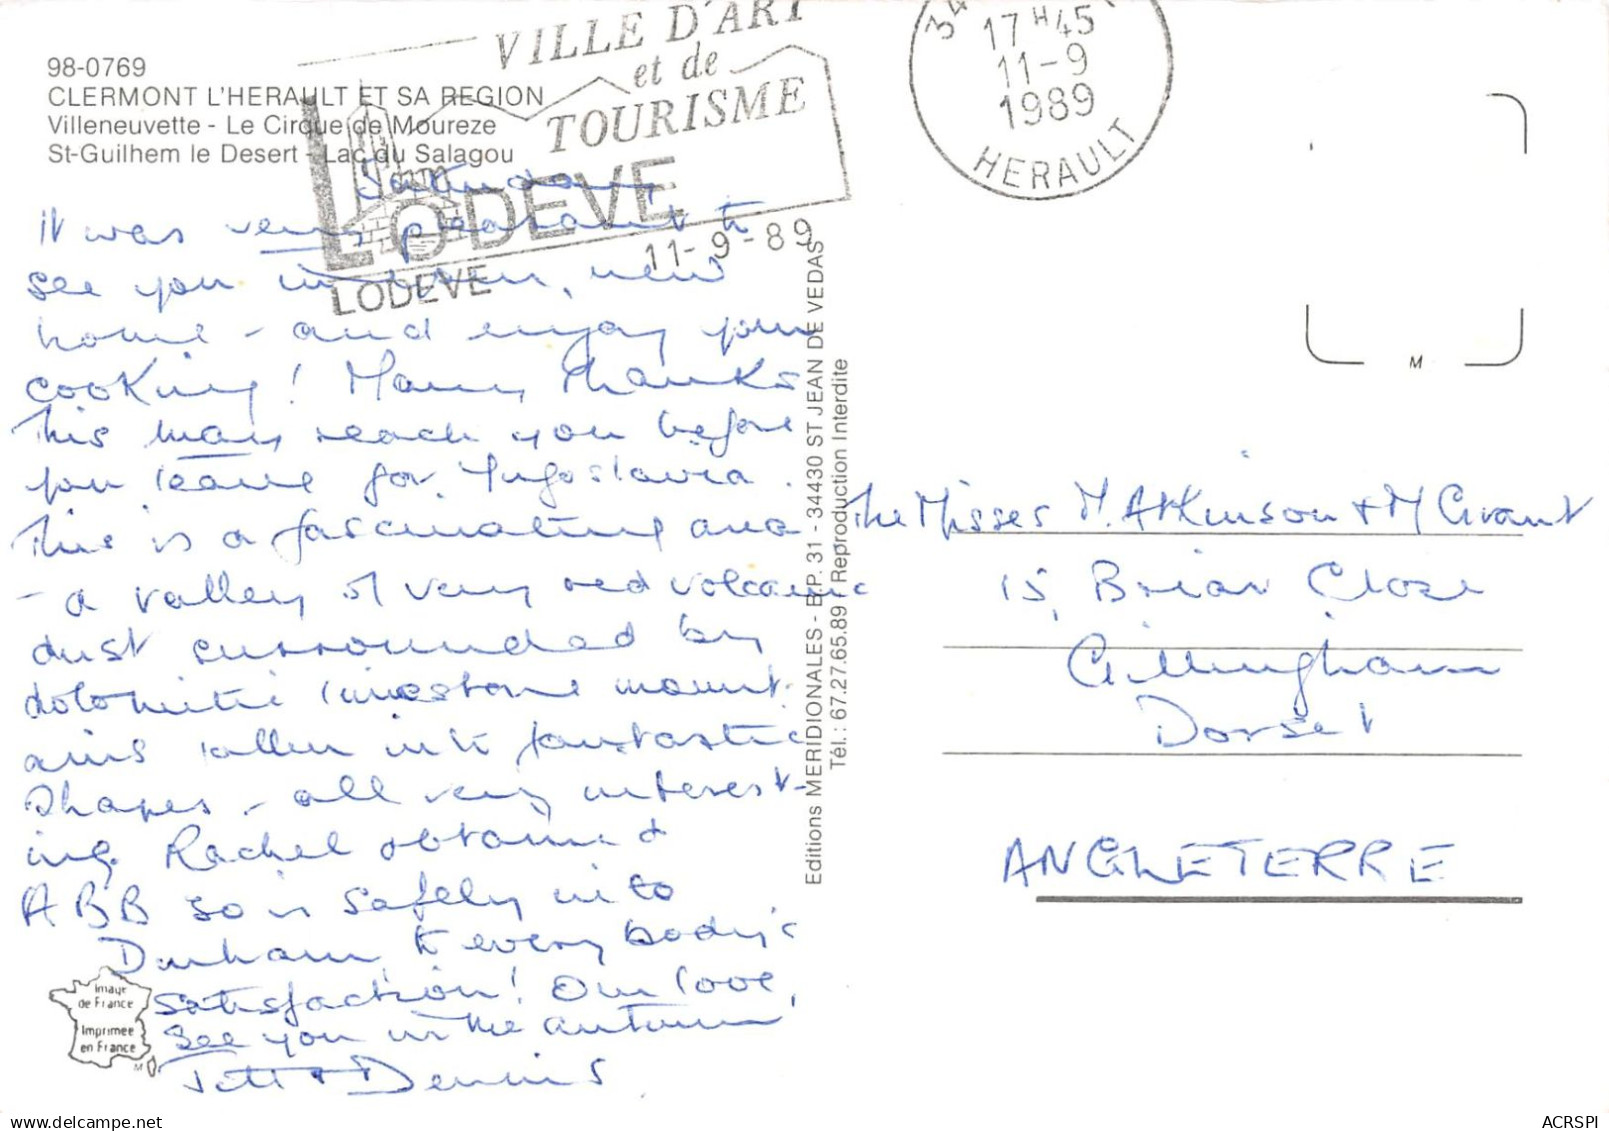 98-0769
CLERMONT L'HERAULT ET SA REGION
Villeneuvette - Le Cirque de Moureze
St-Guilhem le Desert - Lac du Salagou
VILLE D'ART
et de
TOURISME
LODEVE
LODEVE
11-9-89
34
17 H 45
11-9
1989
HERAULT
Saturday
It was very pleasant to
see you in your new
home - and enjoy your
cooking! Many thanks
This may reach you before
you leave for Yugoslavia.
This is a fascinating area
- a valley of very red volcanic
dust surrounded by
dolomitic limestone mount-
ains fallen into fantastic
shapes - all very interest-
ing. Rachel obtained
ABB so is safely into
Durham, to every body's
satisfaction! Our love,
See you in the autumn
+ Dennis
Editions MERIDIONALES - B.P. 31 - 34430 ST JEAN DE VEDAS
Tél.: 67.27.65.89 / Reproduction Interdite
M
The Misses M. Atkinson + M Grant
15, Briar Close
Gillingham
Dorset
ANGLETERRE
Image
de France
Imprimee
en France
M
ACRSPI